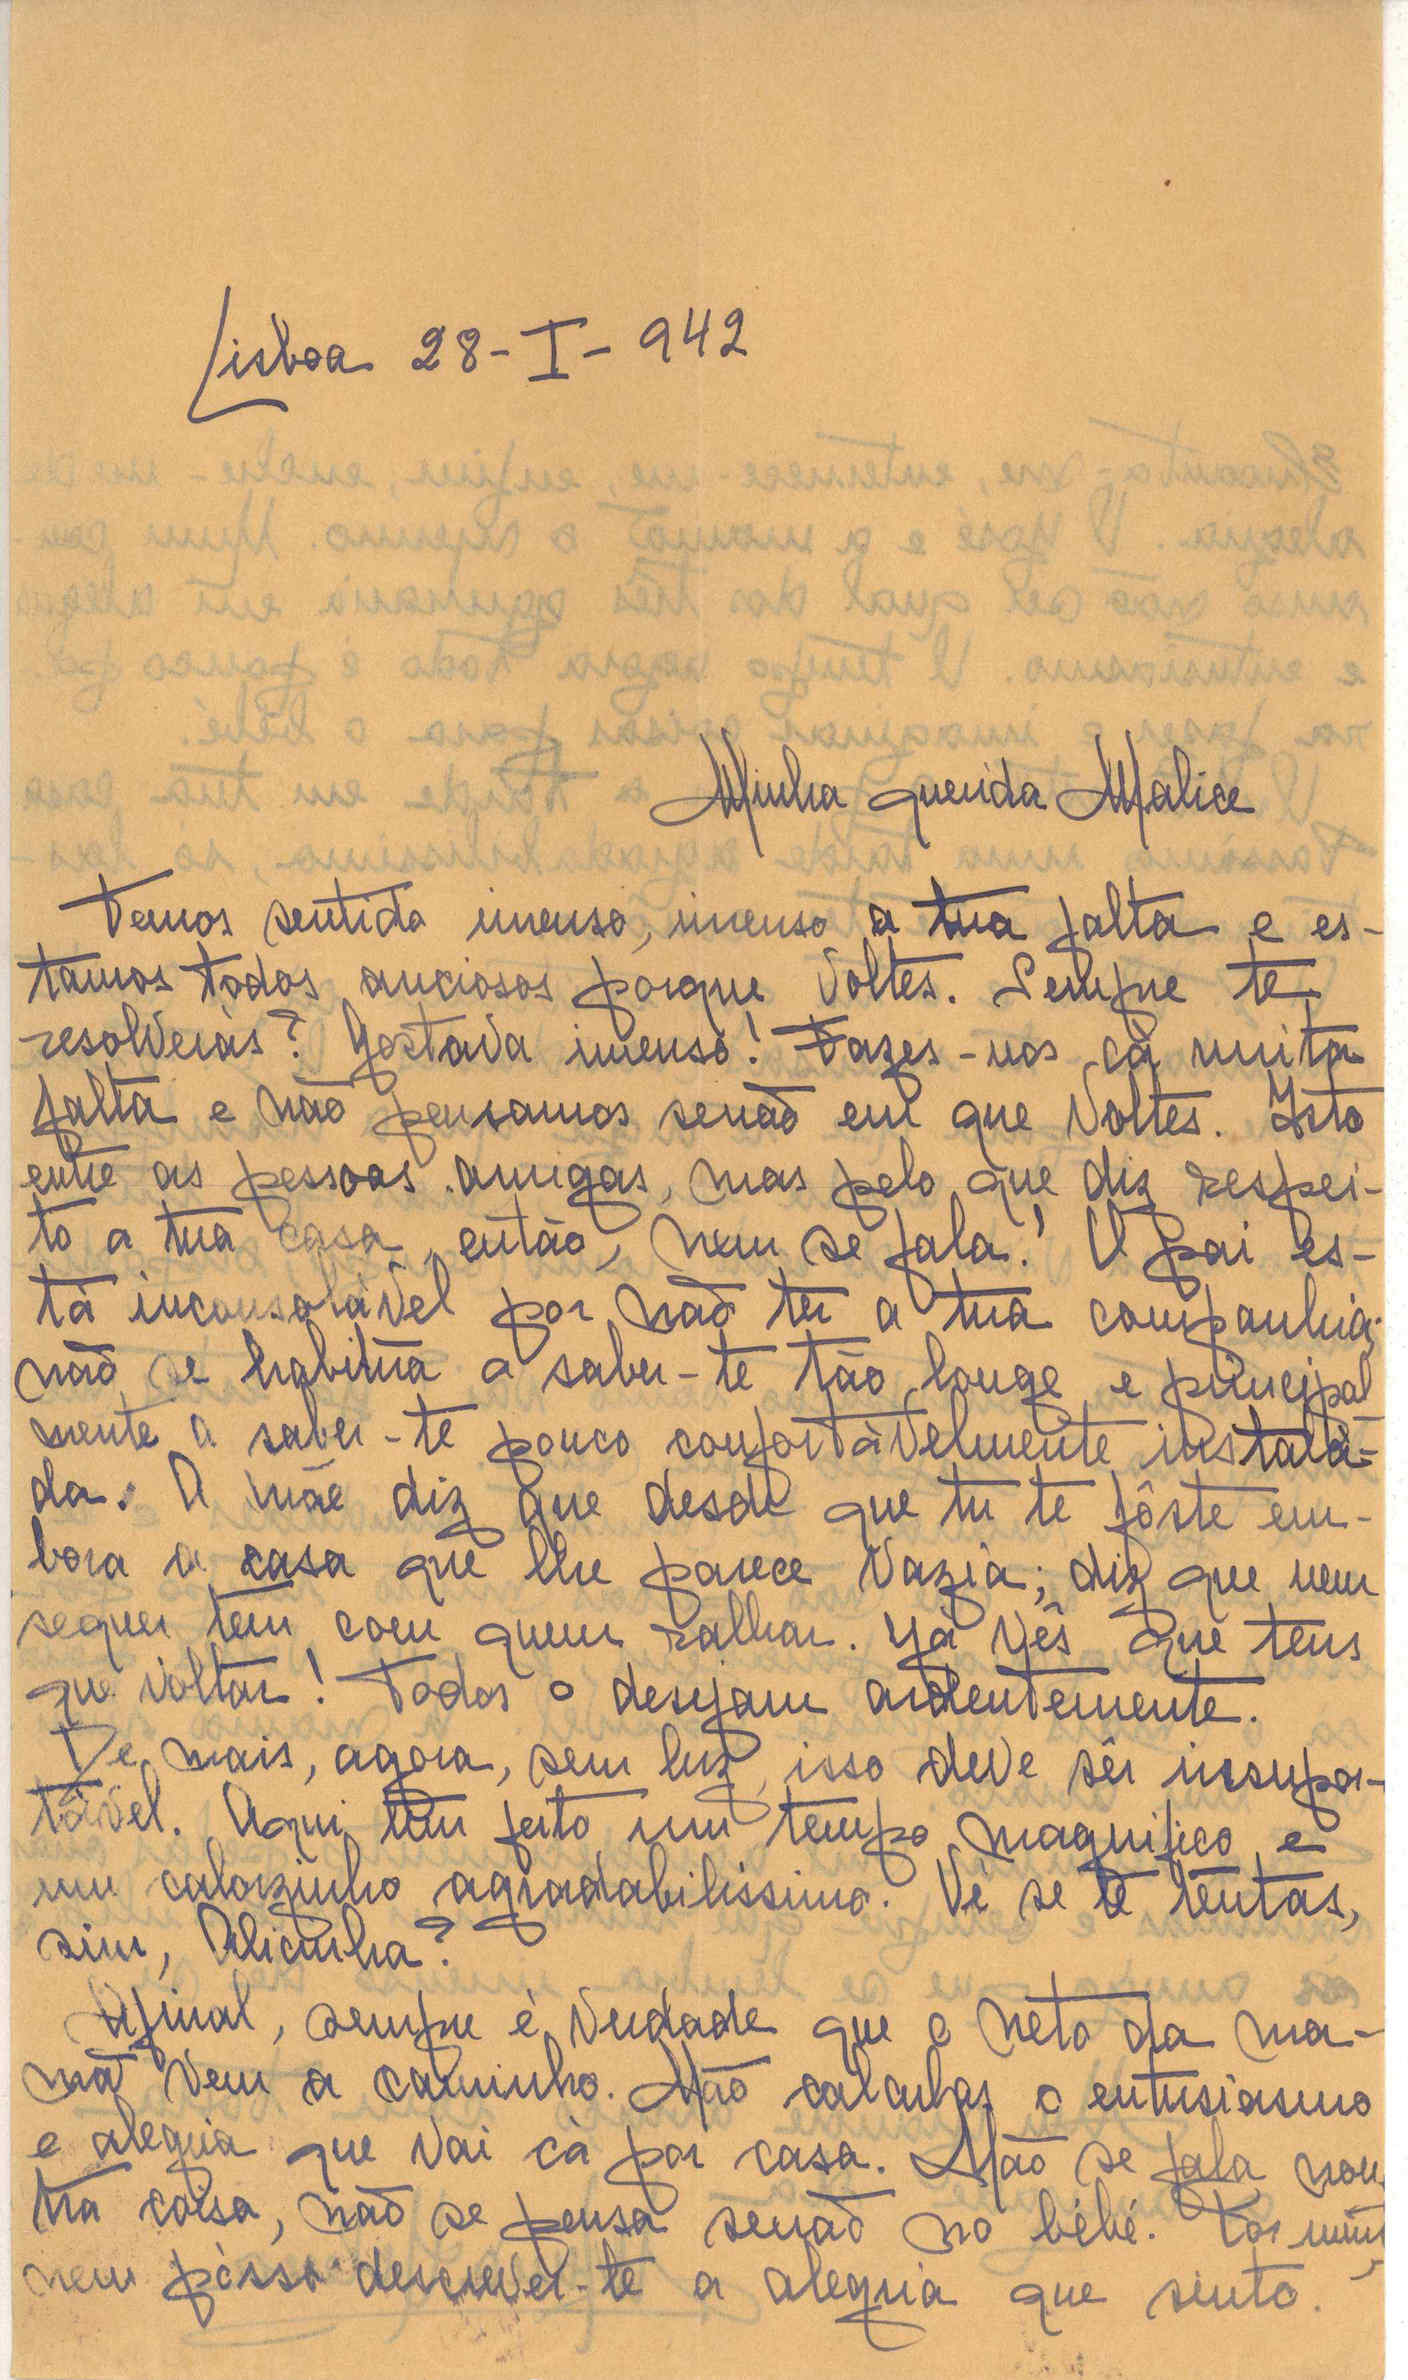 Lisboa 28-I-942
Minha querida Malice
Temos sentido imenso, imenso a tua falta e es-
tamos todos anciosos porque voltes. Sempre te
resolverás? Gostava imenso! Fazes-nos cá muita
falta e não pensamos senão em que voltes. Isto
entre as pessoas amigas, mas pelo que diz respei-
to a tua casa, então, nem se fala! O pai es-
tá inconsolável por não ter a tua companhia;
não se habitua a saber-te tão longe e principal
mente a saber-te pouco confortàvelmente instala-
da. A mãe diz que desde que tu te fôste em-
bora a casa que lhe parece vazia; diz que nem
sequer tem com quem ralhar. Já vês que tens
que voltar! Todos o desejam ardentemente.
De mais, agora, sem luz, isso deve sêr insupor-
tável. Aqui tem feito um tempo magnifico e
um calorzinho agradabilissimo. Vê se te tentas,
sim, Alicinha?
Afinal, sempre é verdade que o neto da ma-
mã vem a caminho. Não calculas o entusiasmo
e alegria que vai cá por casa. Não se fala nou
tra coisa, não se pensa senão no bébé. Por mim,
nem pósso descrever-te a alegria que sinto.